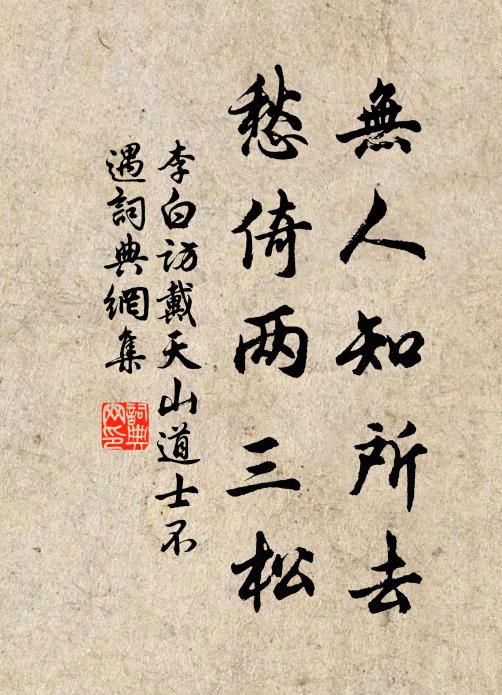 無人知所去
愁倚两三松
李白访戴天山道士不
遇詞典網集
詞典
网印